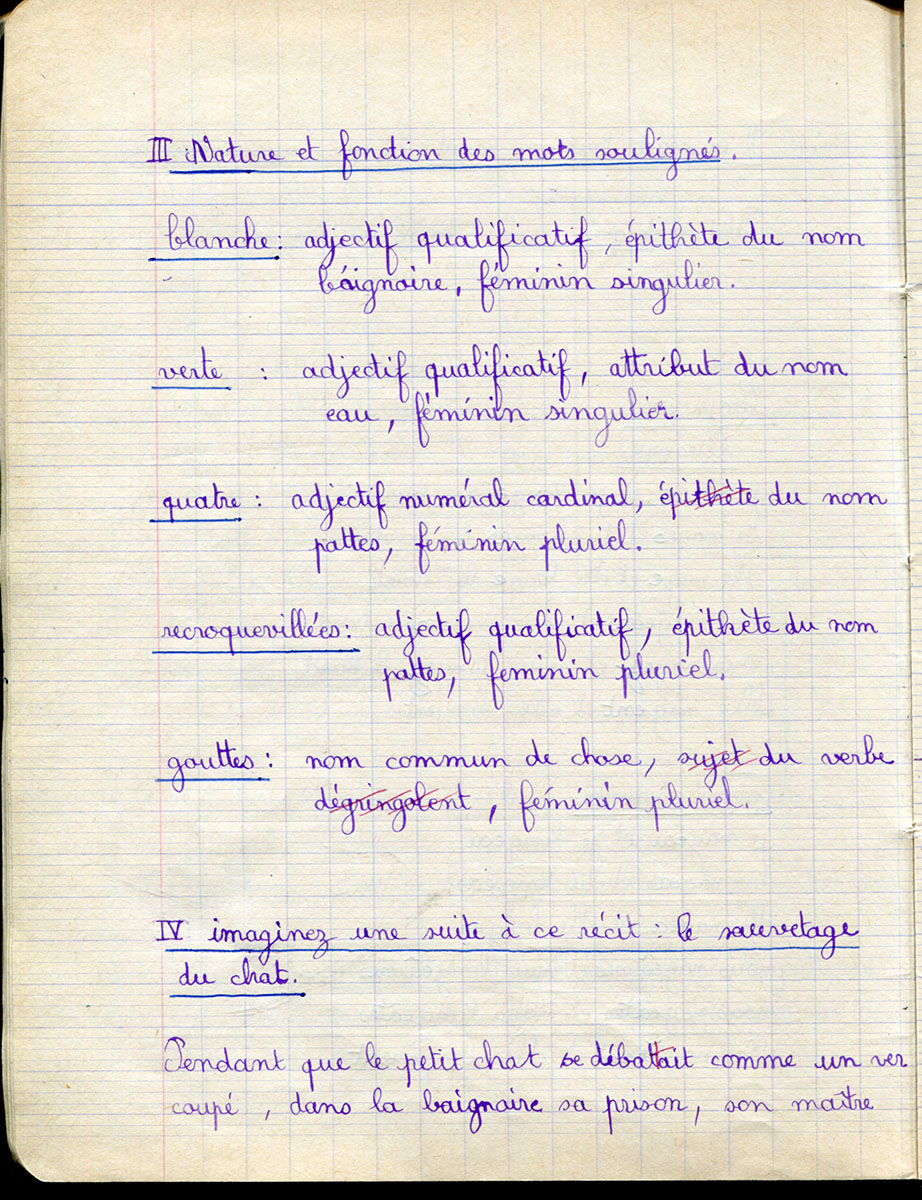 III Nature et fonction des mots soulignés.
blanche : adjectif qualificatif, épithète du nom
baignoire, féminin singulier.
verte : adjectif qualificatif, attribut du nom
eau, féminin singulier.
quatre : adjectif numéral cardinal, épithète du nom
pattes, féminin pluriel.
recroquevillées : adjectif qualificatif, épithète du nom
pattes, feminin pluriel.
gouttes : nom commun de chose, sujet du verbe
dégringolent, féminin pluriel.
IV imaginez une suite à ce récit : le sauvetage
du chat.
Pendant que le petit chat se débattait comme un ver
coupé, dans la baignaire sa prison, son maître